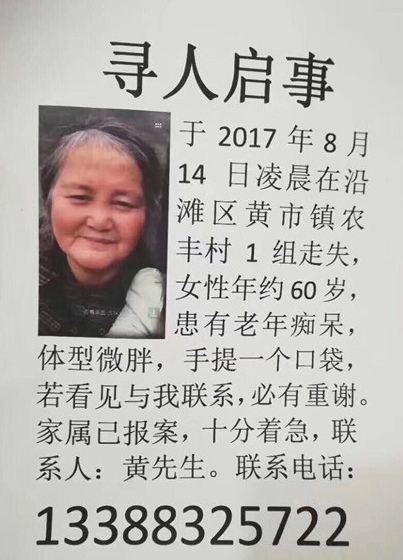 寻人启事
于 2017 年 8 月
14 日凌晨在沿
滩区黄市镇农
丰村 1 组走失，
女性年约 60 岁，
患有老年痴呆，
体型微胖，手提一个口袋，
若看见与我联系，必有重谢。
家属已报案，十分着急，联
系人：黄先生。联系电话：
13388325722